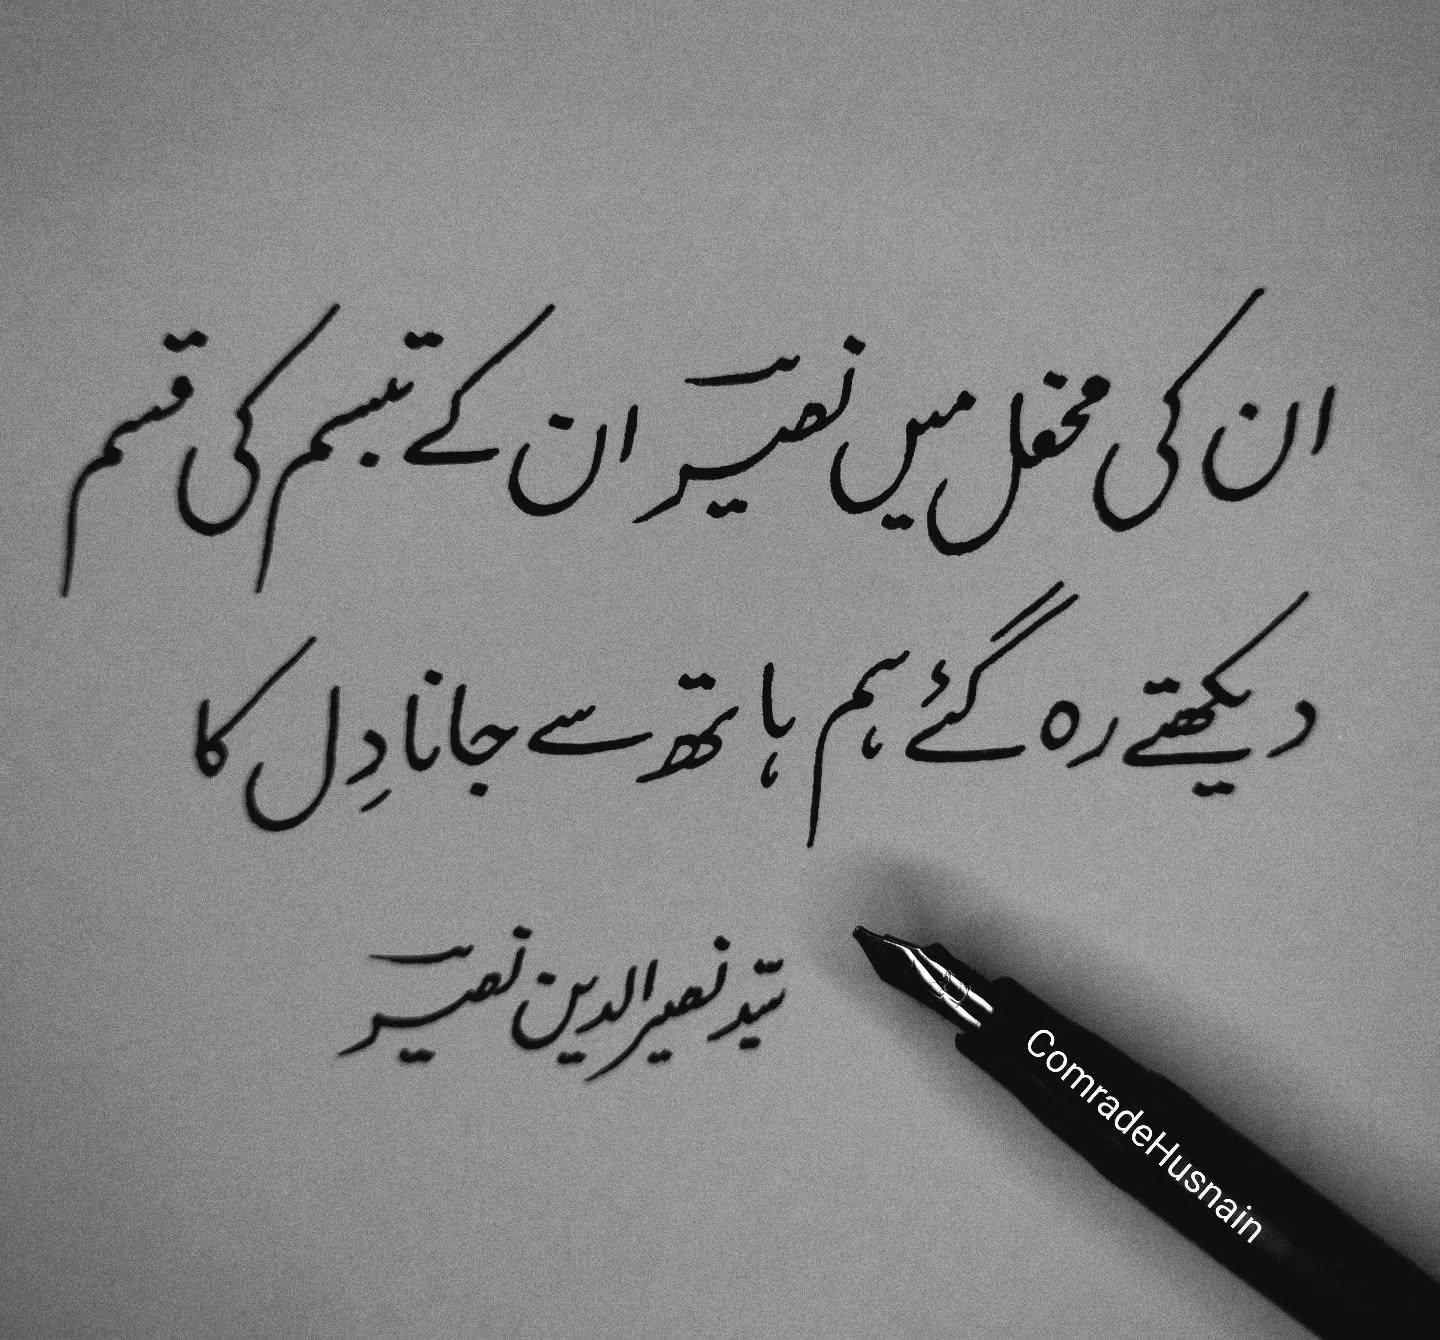 ان کی محفل میں نصیرؔ ان کے تبسم کی قسم
دیکھتے رہ گئے ہم ہاتھ سے جانا دِل کا
سیّد نصیر الدین نصیرؔ
ComradeHusnain